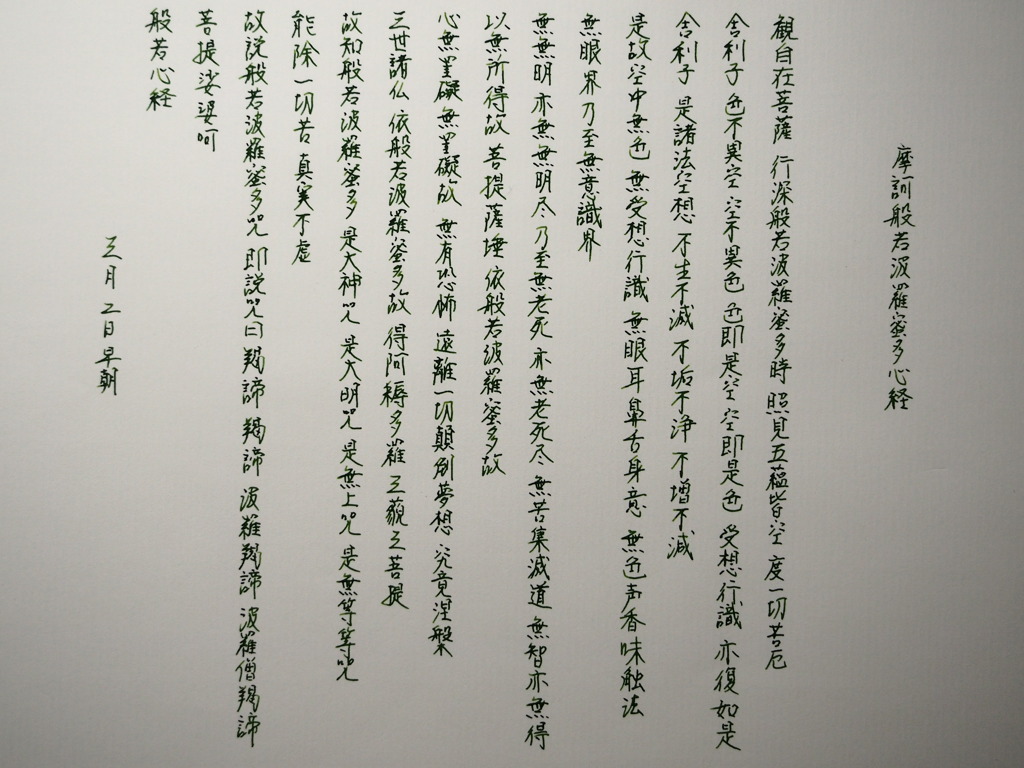 摩訓般若波羅蜜多心経
観自在菩薩 行深般若波羅蜜多時 照見五蘊皆空 度一切苦厄
舎利子 色不異空 空不異色 色即是空 空即是色 受想行識 亦復如是
舎利子 是諸法空想 不生不滅 不垢不浄 不増不減
是故空中無色 無受想行識 無眼耳鼻舌身意 無色声香味触法
無眼界乃至無意識界
無無明亦無無明尽 乃至無老死 亦無老死尽 無苦集滅道 無智亦無得
以無所得故 菩提薩埵 依般若波羅蜜多故
心無罣礙 無罣礙故 無有恐怖 遠離一切顛倒夢想 究竟涅槃
三世諸仏 依般若波羅蜜多故 得阿耨多羅 三藐三菩提
故知般若波羅蜜多 是大神呪 是大明呪 是無上呪 是無等等呪
能除一切苦 真実不虚
故説般若波羅蜜多呪 即説呪曰 羯諦 羯諦 波羅羯諦 波羅僧羯諦
菩提娑婆呵
般若心経
三月二日早朝